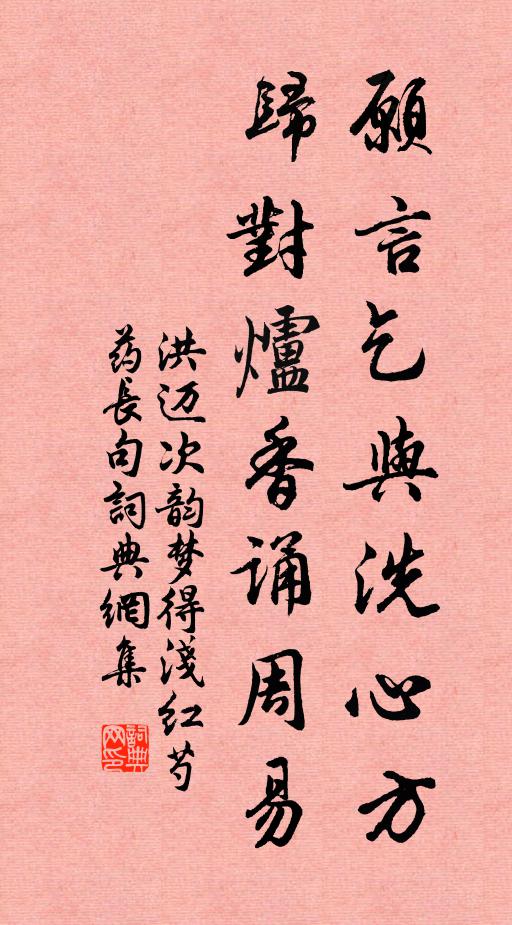 願言乞與洗心方
歸對爐香诵周易
洪迈次韵梦得淺红芍
药長句詞典網集
詞典
网印